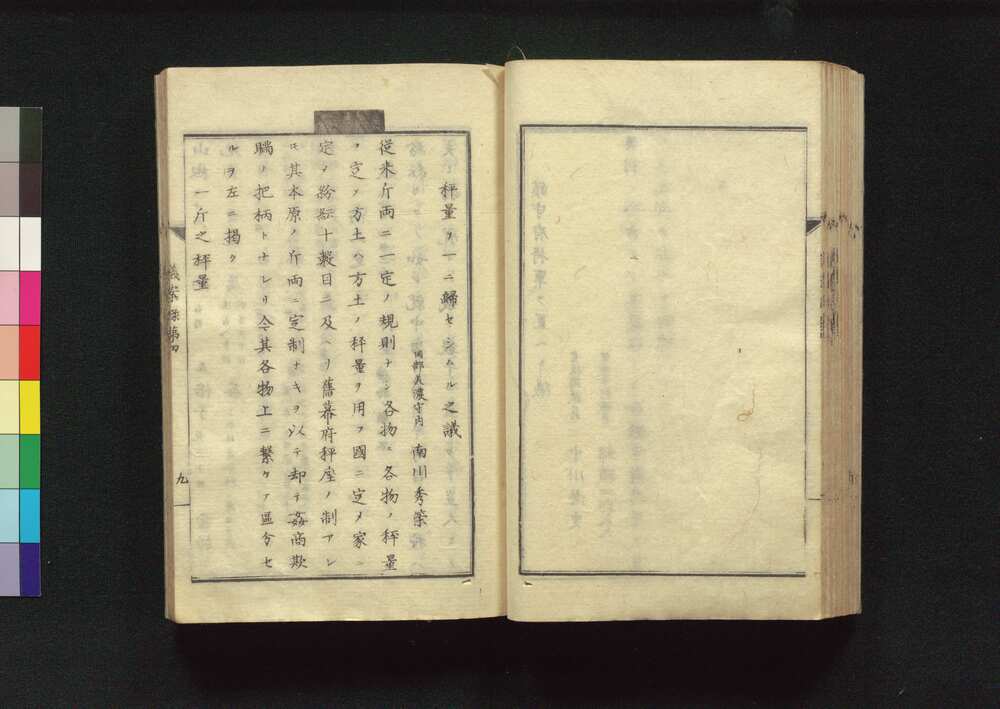 秤量ヲ一ニ歸セシムルノ之議
岡部美濃守内 南川秀榮
從来斤両ニ一定ノ規則ナシ各物ハ各物ノ秤量
ヲ定メ方土ハ方土ノ秤量ヲ用ヲ國ニ定メ家ニ
定メ紛紜十數目ニ及ヘリ舊幕府秤座ノ制アレ
𪜈其本原ノ斤両ニ定制ナキヲ以テ却テ姦商欺
瞞ノ把柄トナレリ今其各物上ニ繫ケテ區分セ
ルヲ左ニ掲ク
一斤之秤量
議案録第四
九